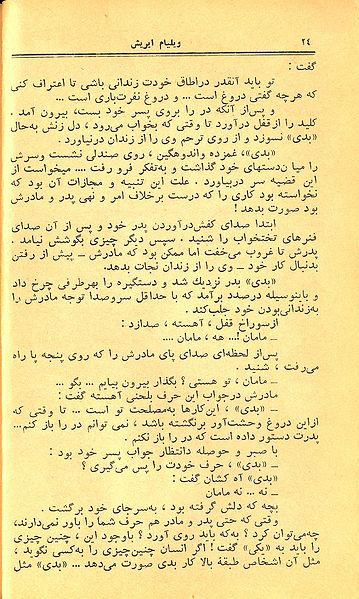 ۲۴ ویلیام ایریش
گفت :
تو باید آنقدر دراطاق خودت زندانی باشی تا اعتراف کنی
که هرچه گفتی دروغ است ... و دروغ نفرت‌باری است ...
و پس‌از آنکه در را بروی پسر خود بست، بیرون آمد .
کلید را ازقفل درآورد تا وقتی که بخواب می‌رود ، دل زنش به‌حال
«بدی» نسوزد و از روی ترحم وی را از زندان درنیاورد .
«بدی»، غمزده واندوهگین ، روی صندلی نشست وسرش
را میا ن‌دستهای خود گذاشت و به‌تفکر فرو رفت .... میخواست از
این قضیه سر دربیاورد . علت این تنبیه و مجازات آن بود که
نخواسته بود کاری را که درست برخلاف امر و نهی پدر و مادرش
بود صورت بدهد !
ابتدا صدای کفش‌درآوردن پدر خود و پس از آن صدای
فنرهای تختخواب را شنید . سپس دیگر چیزی بگوشش نیامد .
پدرش تا غروب می‌خفت اما ممکن بود که مادرش ــ پیش از رفتن
بدنبال کار خود ــ وی را از زندان نجات بدهد.
«بدی» بدر نزدیك شد و دستگیره را بهرطرفی چرخ داد
و باینوسیله درصدد برآمد که با حداقل سروصدا توجه مادرش را
به‌زندانی‌بودن خود جلب‌کند .
ازسوراخ قفل ، آهسته ، صدازد :
ــ مامان !... هه ، مامان ....
پس‌از لحظه‌ای صدای پای مادرش را که روی پنجه پا راه
می‌رفت ، شنید .
ــ مامان ، تو هستی ؟ بگذار بیرون بیایم ... بگو ...
مادرش درجواب این حرف بلحنی آهسته گفت :
ــ «بدی» ، این‌کارها به‌مصلحت تو است ... تا وقتی که
ازاین دروغ وحشت‌آور برنگشته باشد ، نمی توانم در را باز کنم...
پدرت دستور داده است که در را باز نکنم .
با صبر و حوصله دانتظار جواب پسر خود بود :
ــ «بدی» ، حرف خودت را پس می‌گیری ؟
«بدی» آه کشان گفت :
ــ نه ... نه مامان
بچه که دلش گرفته بود ، به‌سرجای خود برگشت .
وقتی که حتی پدر و مادر هم حرف شما را باور نمی‌دارند،
چه‌می‌توان کرد ؟ به‌که باید روی آورد ؟ باوجود این ، چنین چیزی
را باید به «یکی» گفت! اگر انسان چنین‌چیزی را به‌کسی نگوید ،
مثل آن اشخاص طبقهٔ بالا کار بدی صورت می‌دهد ... «بدی» مثل